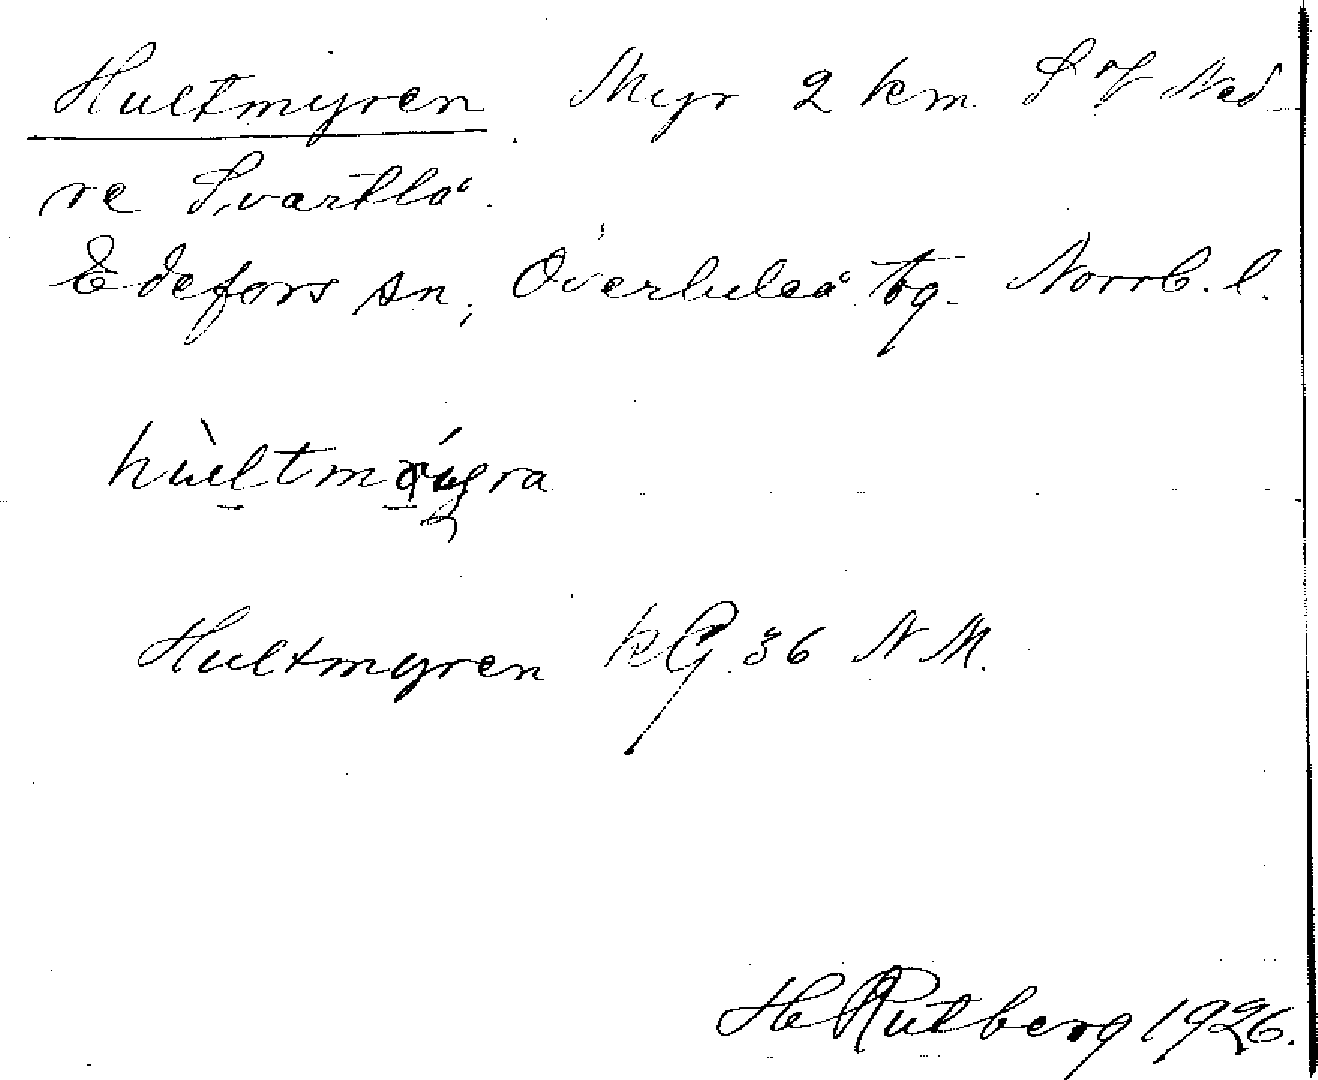 Hultmyren. Myr 2 km. S of Ned-
re Svartlå.
Edefors sn, Överluleå tg. Norrb. l.
Hultmyren kG. 36 N M.
H Rutberg 1926.